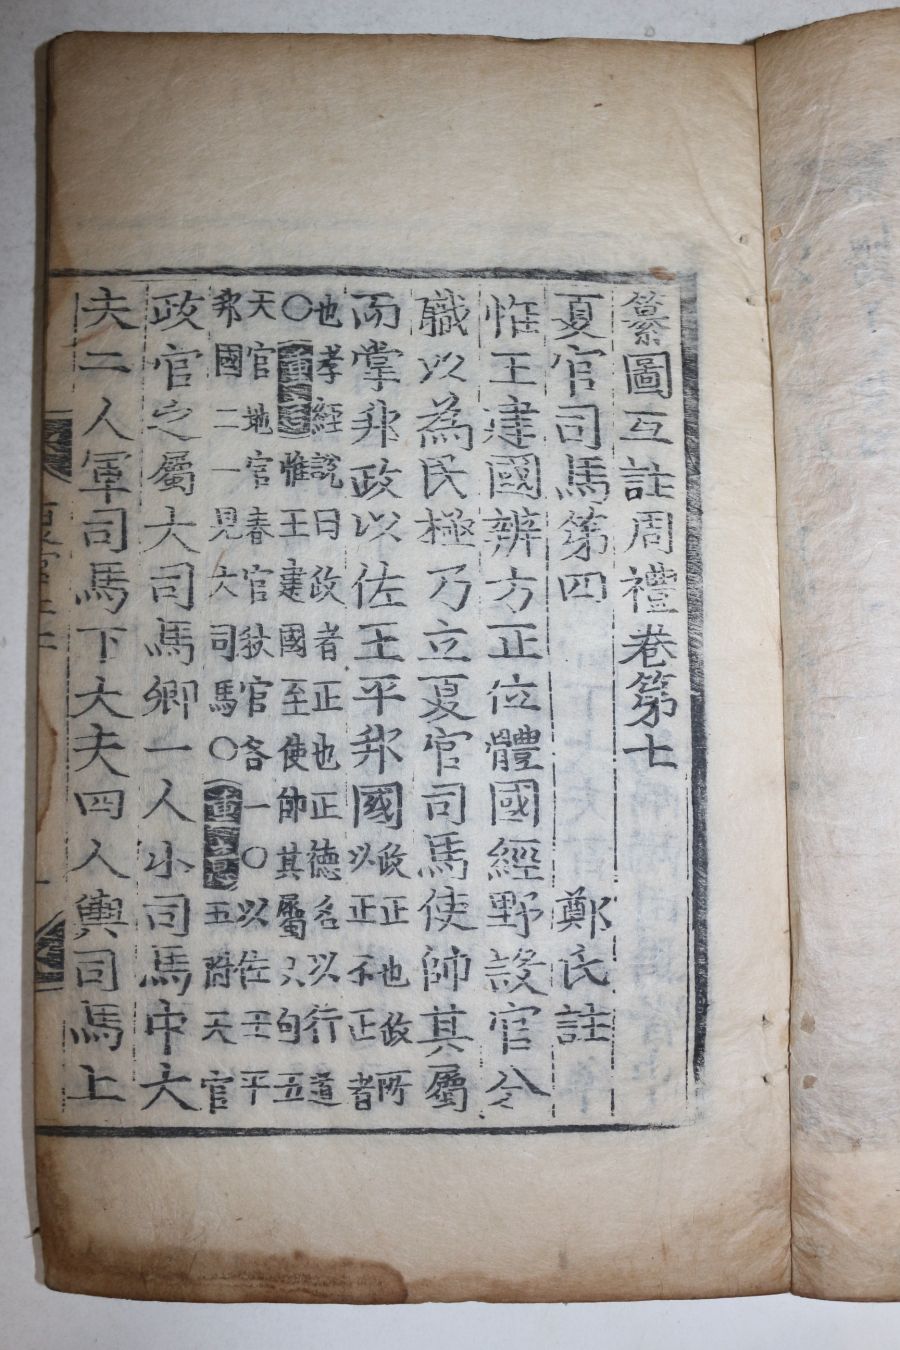 纂圖互註周禮卷第七
夏官司馬第四　鄭氏註
惟王建國辨方正位體國經野設官分
職以為民極乃立夏官司馬使帥其屬
而掌邦政以佐王平邦國政正也政所
以正不正者
也孝經說曰政者正也正德名以行道
○重言惟王建國至使帥其屬八句五
天官地官春官秋官各一○以佐王平
邦國二一見大司馬○重意五天官
政官之屬大司馬卿一人小司馬中大
夫二人軍司馬下大夫四人輿司馬上